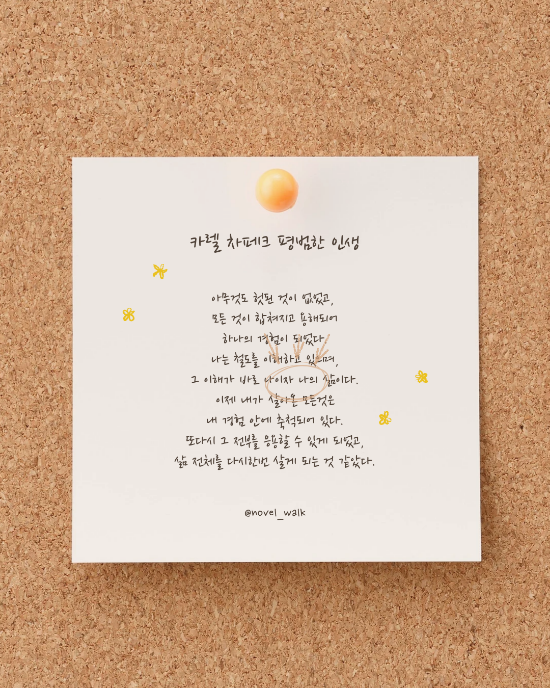 카렐 차페크 평범한 인생
아무것도 헛된 것이 없었고,
모든 것이 합쳐지고 용해되어
하나의 경험이 되었다.
나는 철도를 이해하고 있으며,
그 이해가 바로 나이자 나의 삶이다.
이제 내가 살아온 모든것은
내 경험 안에 축적되어 있다.
또다시 그 전부를 응용할 수 있게 되었고,
삶 전체를 다시한번 살게 되는 것 같았다.
@novel_walk